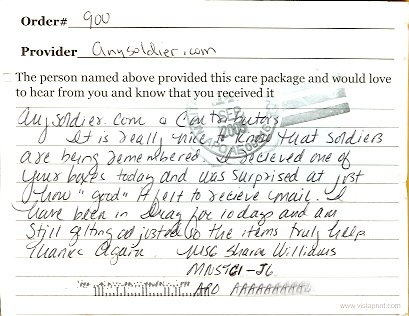 Order# 900
Provider anysoldier.com
The person named above provided this care package and would love
to hear from you and know that you received it
anysoldier.com & Contributors,
It is really nice to know that soldiers
are being remembered. I recieved one of
your boxes today and was surprised at just
how "good" it felt to recieve mail. I
have been in Iraq for 10 days and am
still getting adjusted so the items truly help
Thanks Again. MSG Sharon Williams
MNSTCI-J6
APO AAAAAAAAA
www.vistaprint.com